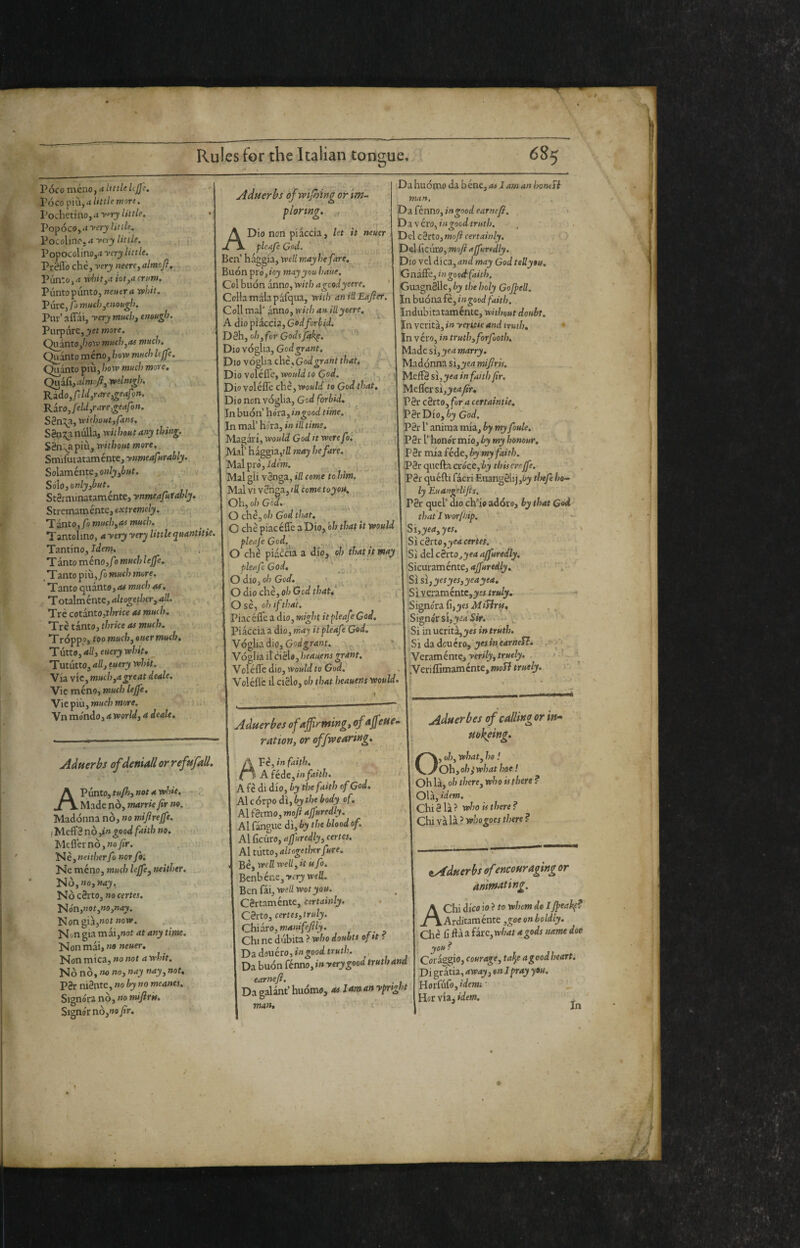 Rules for the Italian tongue. 685
Póco méno, a little lesse.
Póco più, a little more.
Pochetíno, a very little.
Popóco, a very little.
Pocolíno, a very little.
Popocolíno, a very little.
Prèsso ché, very neere, almost.
Púnto, a whit, a iot, a crum.
Púnto púnto, neuer a whit.
Púre, so much, enough.
Pur' assái, very much, enough.
Purpúre, yet more.
Quánto, how much, as much.
Quánto méno, how much lesse.
Quánto più, how much more.
Quási, almost, welnigh.
Rádo, seld, rare, geason.
Ráro, seld, rare, geason.
Sènza, without, sans.
Sènza núlla, without any thing.
Sènza più, without more.
Smisurataménte, vnmeasurably.
Solaménte, only, but.
Sólo, only, but.
Stèrminataménte, vnmeasurably.
Stremaménte, extremely.
Tánto, so much, as much.
Tantolíno, a very very little quantitie.
Tantíno, Idem.
Tánto méno, so much lesse.
Tanto più, so much more.
Tanto quánto, as much as.
Totalménte, altogether, all.
Tre cotánto, thrice as much.
Trè tánto, thrice as much.
Tróppo, too much, ouer much.
Tútto, all, euery whit.
Tutútto, all, euery whit.
Via víe, much, a great deale.
Vie méno, much lesse.
Vie più, much more.
Vn móndo, a world, a deale.
Aduerbs of deniall or refusall.
A Púnto, tush, not a whit.
Made nò, marrie sir no.
Madónna nò, no mistresse.
Messè nò, in good faith no.
Messer nò, no sir.
Nè, neither so nor so.
Ne méno, much lesse, neither.
Nò, no, nay.
Nò cèrto, no certes.
Nón, not, no, nay.
Non già, not now.
Non gia mái, not at any time.
Non mái, no neuer.
Non mica, no not a whit.
Nò nò, no no, nay nay, not.
Pèr niènte, no by no meanes.
Signóra nò, no mistris.
Signór nò, no sir.
Aduerbs of wishing or im-
ploring.
A Dio non piáccia, let it neuer
please God.
Ben' hággia, well may he fare.
Buón pro, ioy may you haue.
Col buón ánno, with a good yeere.
Colla mála pásqua, with an ill Easter.
Coll mal' ánno, with an ill yeere.
A dio piáccia, God forbid.
Dèh, oh, for Gods sake.
Dio vóglia, God grant.
Dio vóglia chè, God grant that.
Dio volésse, would to God.
Dio volésse chè, would to God that.
Dio non vóglia, God forbid.
In buón' hóra, in good time.
In mal' hóra, in ill time.
Magári, would God it were so.
Mal' hággia, ill may he fare.
Mal pró, Idem.
Mal gli vènga, ill come to him.
Mal vi vènga, ill come to you.
Oh, oh God.
O chè, oh God that.
O chè piacésse a Dio, oh that it would
please God.
O chè piáccia a dio, oh that it may
please God.
O dio, oh God.
O dio chè, oh God that.
O sè, oh if that.
Piacésse a dio, might it please God.
Piáccia a dio, may it please God.
Vóglia dio, God grant.
Vóglia il cièlo, heauens grant.
Volésse dio, would to God.
Volésse il cièlo, oh that heauens would.
Aduerbes of affirming, of asseue-
ration, or of swearing.
A Fè, in faith.
A féde, in faith.
A fè di dío, by the faith of God.
Al córpo di, by the body of.
Al férmo, most assuredly.
Al sángue di, by the blood of.
Al sicúro, assuredly, certes.
Al tútto, altogether sure.
Bè, well well, it is so.
Benbéne, very well.
Ben sái, well wot you.
Cèrtaménte, certainly.
Cèrto, certes, truly.
Chiáro, manifestly.
Chi ne dúbita? who doubts of it?
Da douéro, in good truth.
Da buón sénno, in very good truth and
earnest.
Da galánt' huómo, as I am an vpright
man.
Da huómo da béne, as I am an honest
man.
Da sénno, in good earnest.
Da véro, in good truth.
Del cèrto, most certainly.
Del sicúro, most assuredly.
Dio vel dica, and may God tell you.
Gnáffe, in good faith.
Guagnèlle, by the holy Gospell.
In buóna fè, in good faith.
Indubitataménte, without doubt.
In verità, in veritie and truth.
In véro, in truth, forsooth.
Made sì, yea marry.
Madónna sì, yea mistris.
Messè sì, yea in faith sir.
Messer sì, yea sir.
Pèr cèrto, for a certaintie.
Pèr Dío, by God.
Pèr l' anima mía, by my soule.
Pèr l' honór mío, by my honour.
Pèr mia féde, by my faith.
Pèr questa cróce, by this crosse.
Pèr quésti sácri Euangèlij, by these ho-
ly Euangelists.
Pèr quel' dio ch'io adóro, by that God
that I worship.
Sì, yea, yes.
Sì cèrto, yea certes.
Sì del cèrto, yea assuredly.
Sicuraménte, assuredly.
Sì sì, yes yes, yea yea.
Sì veraménte, yes truly.
Signóra sì, yes Mistris.
Signór sì, yea Sir.
Sì in uerità, yes in truth.
Sì da douéro, yes in earnest.
Veraménte, verily, truely.
Verissimaménte, most truely.
Aduerbes of calling or in-
uokeing.
O, oh, what, ho!
Oh, oh, what hoe!
Oh là, oh there, who is there?
Olà, idem.
Chi è là? who is there?
Chi và là? who goes there?
Aduerbs of encouraging or
animating.
A Chi dico io? to whom do I speake?
Arditaménte, goe on boldly.
Chè si stà a fáre, what a gods name doe
you?
Corággio, courage, take a good heart.
Di grátia, away, on I pray you.
Horsúso, idem.
Hor vía, idem.
In